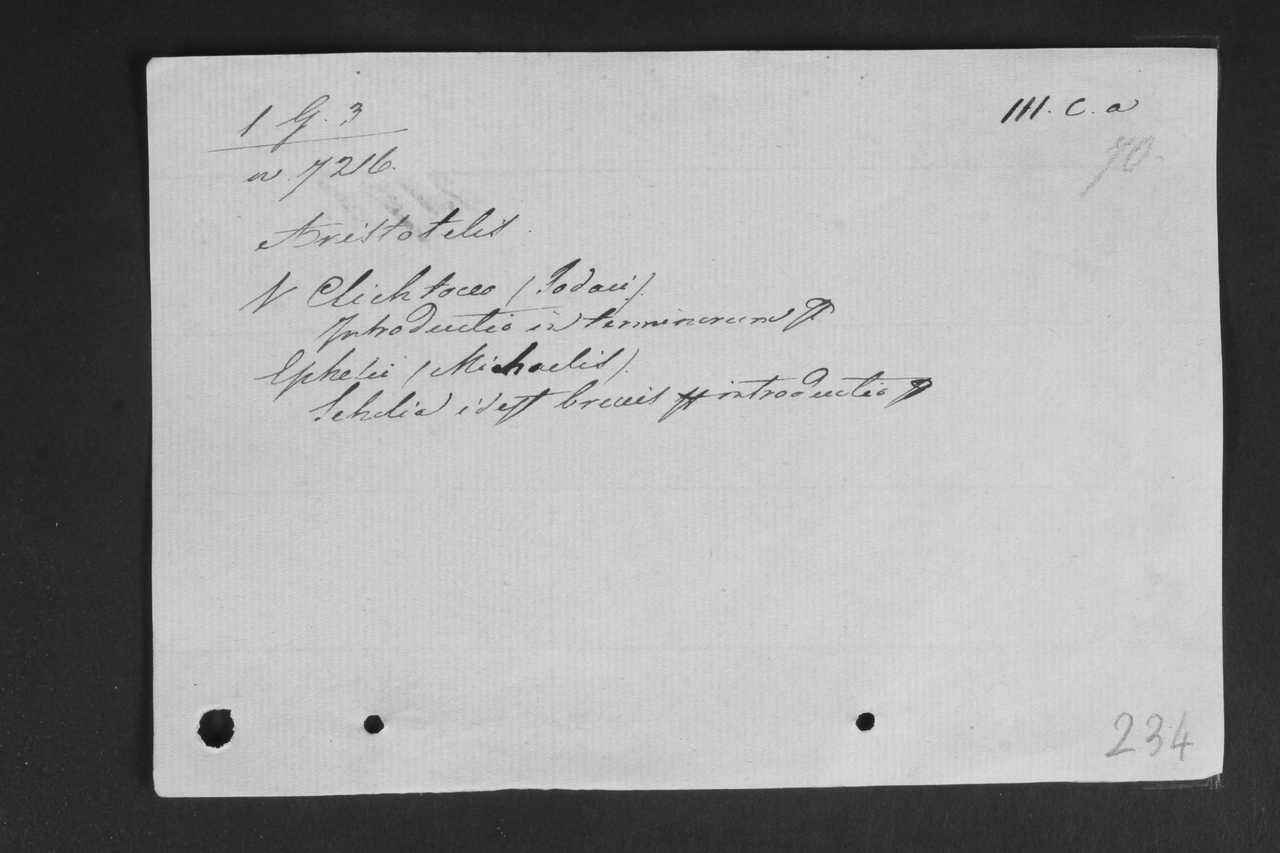 1 G. 3
III. C. a
70.
n. 7216.
Aristotelis.
V Clichtoveo (Jodaci).
Introductio in terminorum
Ephesii (Michaelis).
Scholia idest brevis introductio
234